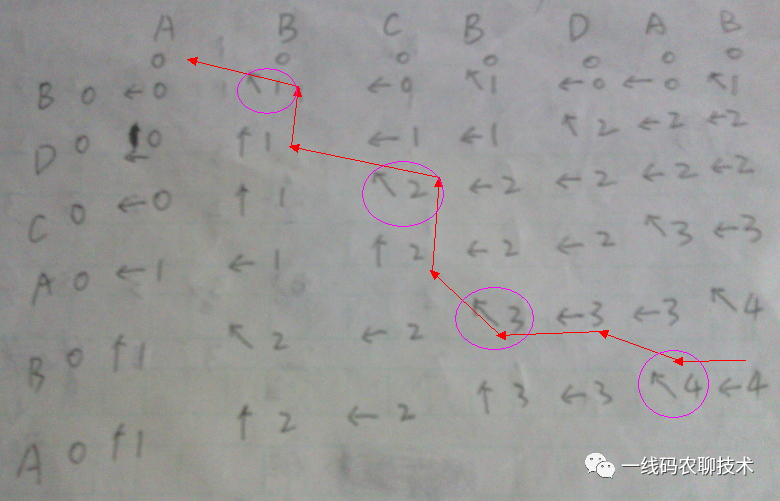 A B C B D A B
0 0 0 0 0 0 0
B 0 ←0 ↖1 ←9 ↖1 ←0 ←0 ↖1
D 0 ←0 ↑1 ←1 ←1 ↖2 ←2 ←2
C 0 ←0 ↑1 ↖2 ←2 ←2 ←2 ←2
A 0 ←1 ←1 ↑2 ←2 ←2 ↖3 ←3
B 0 ↑1 ↖2 ←2 ↖3 ←3 ←3 ↖4
A 0 ↑1 ↑2 ←2 ↑3 ←3 ↖4 ←4
一线码农聊技术